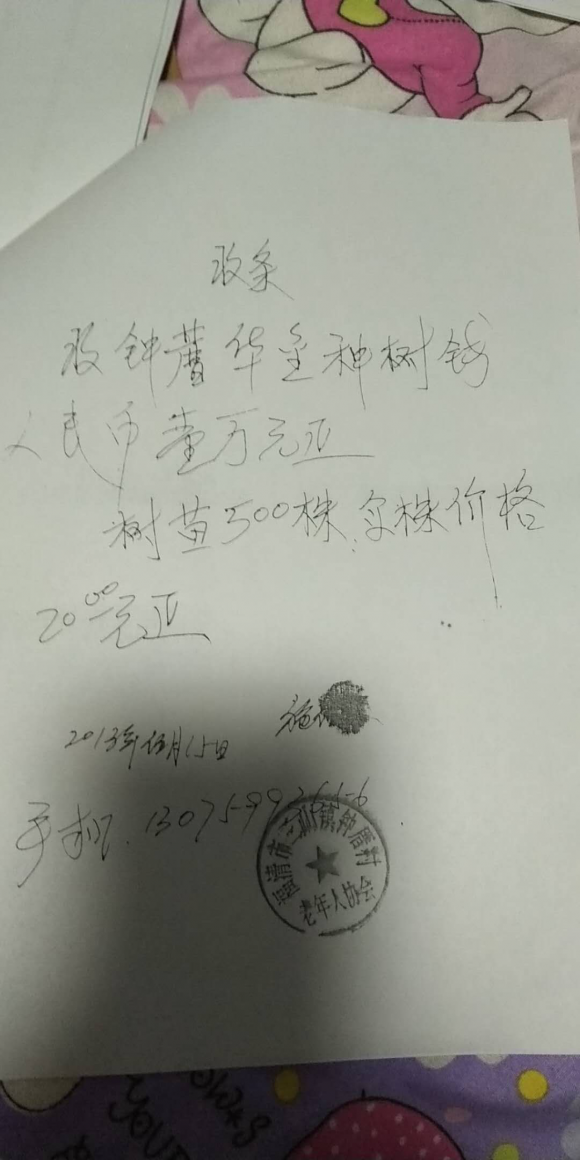 收条
收钟蕭华全种树钱
人民币壹万元正
树苗500株，每株价格
20.00元正
2013年 月15日
手机.1307599
福清市 镇钟厝村
老年人协会
YOUR